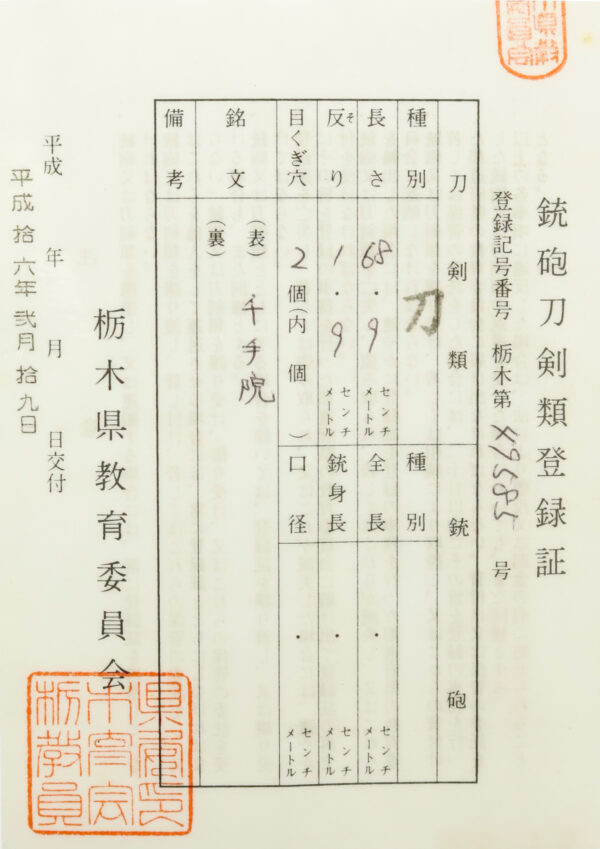 銃砲刀剣類登録証
登録記号番号 栃木第 49585 号
刀剣類
銃砲
種別 刀
種別
長さ 68.9 センチメートル
全長 ・ センチメートル
反り 1.9 センチメートル
そ
銃身長 ・ センチメートル
目くぎ穴 2個(内 個)
口径 ・ センチメートル
銘文 (表) 千手院
(裏)
備考
栃木県教育委員会
平成 年 月 日交付
平成拾六年弐月拾九日